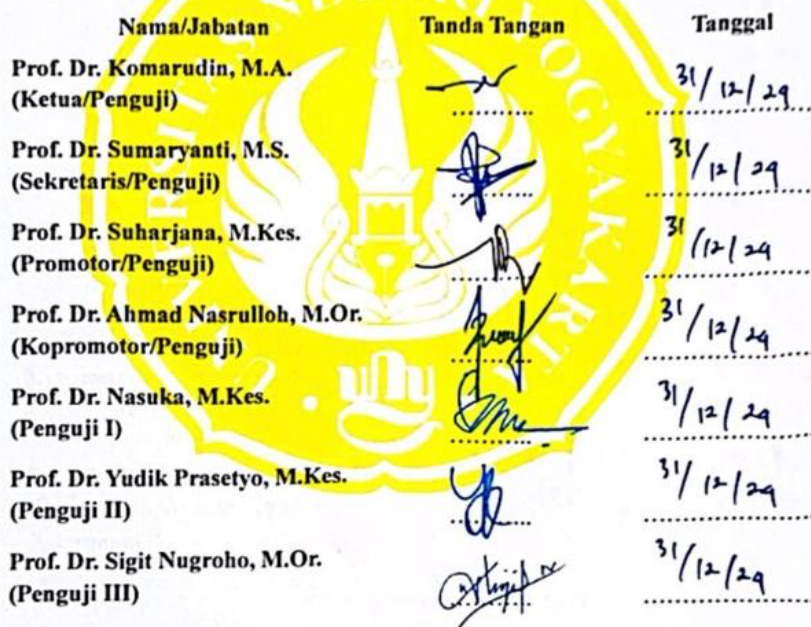 Nama/Jabatan Tanda Tangan Tanggal
Prof. Dr. Komarudin, M.A.
(Ketua/Penguji) 31/12/24
Prof. Dr. Sumaryanti, M.S.
(Sekretaris/Penguji) 31/12/24
Prof. Dr. Suharjana, M.Kes.
(Promotor/Penguji) 31/12/24
Prof. Dr. Ahmad Nasrulloh, M.Or.
(Kopromotor/Penguji) 31/12/24
Prof. Dr. Nasuka, M.Kes.
(Penguji I) 31/12/24
Prof. Dr. Yudik Prasetyo, M.Kes.
(Penguji II) 31/12/24
Prof. Dr. Sigit Nugroho, M.Or.
(Penguji III) 31/12/24